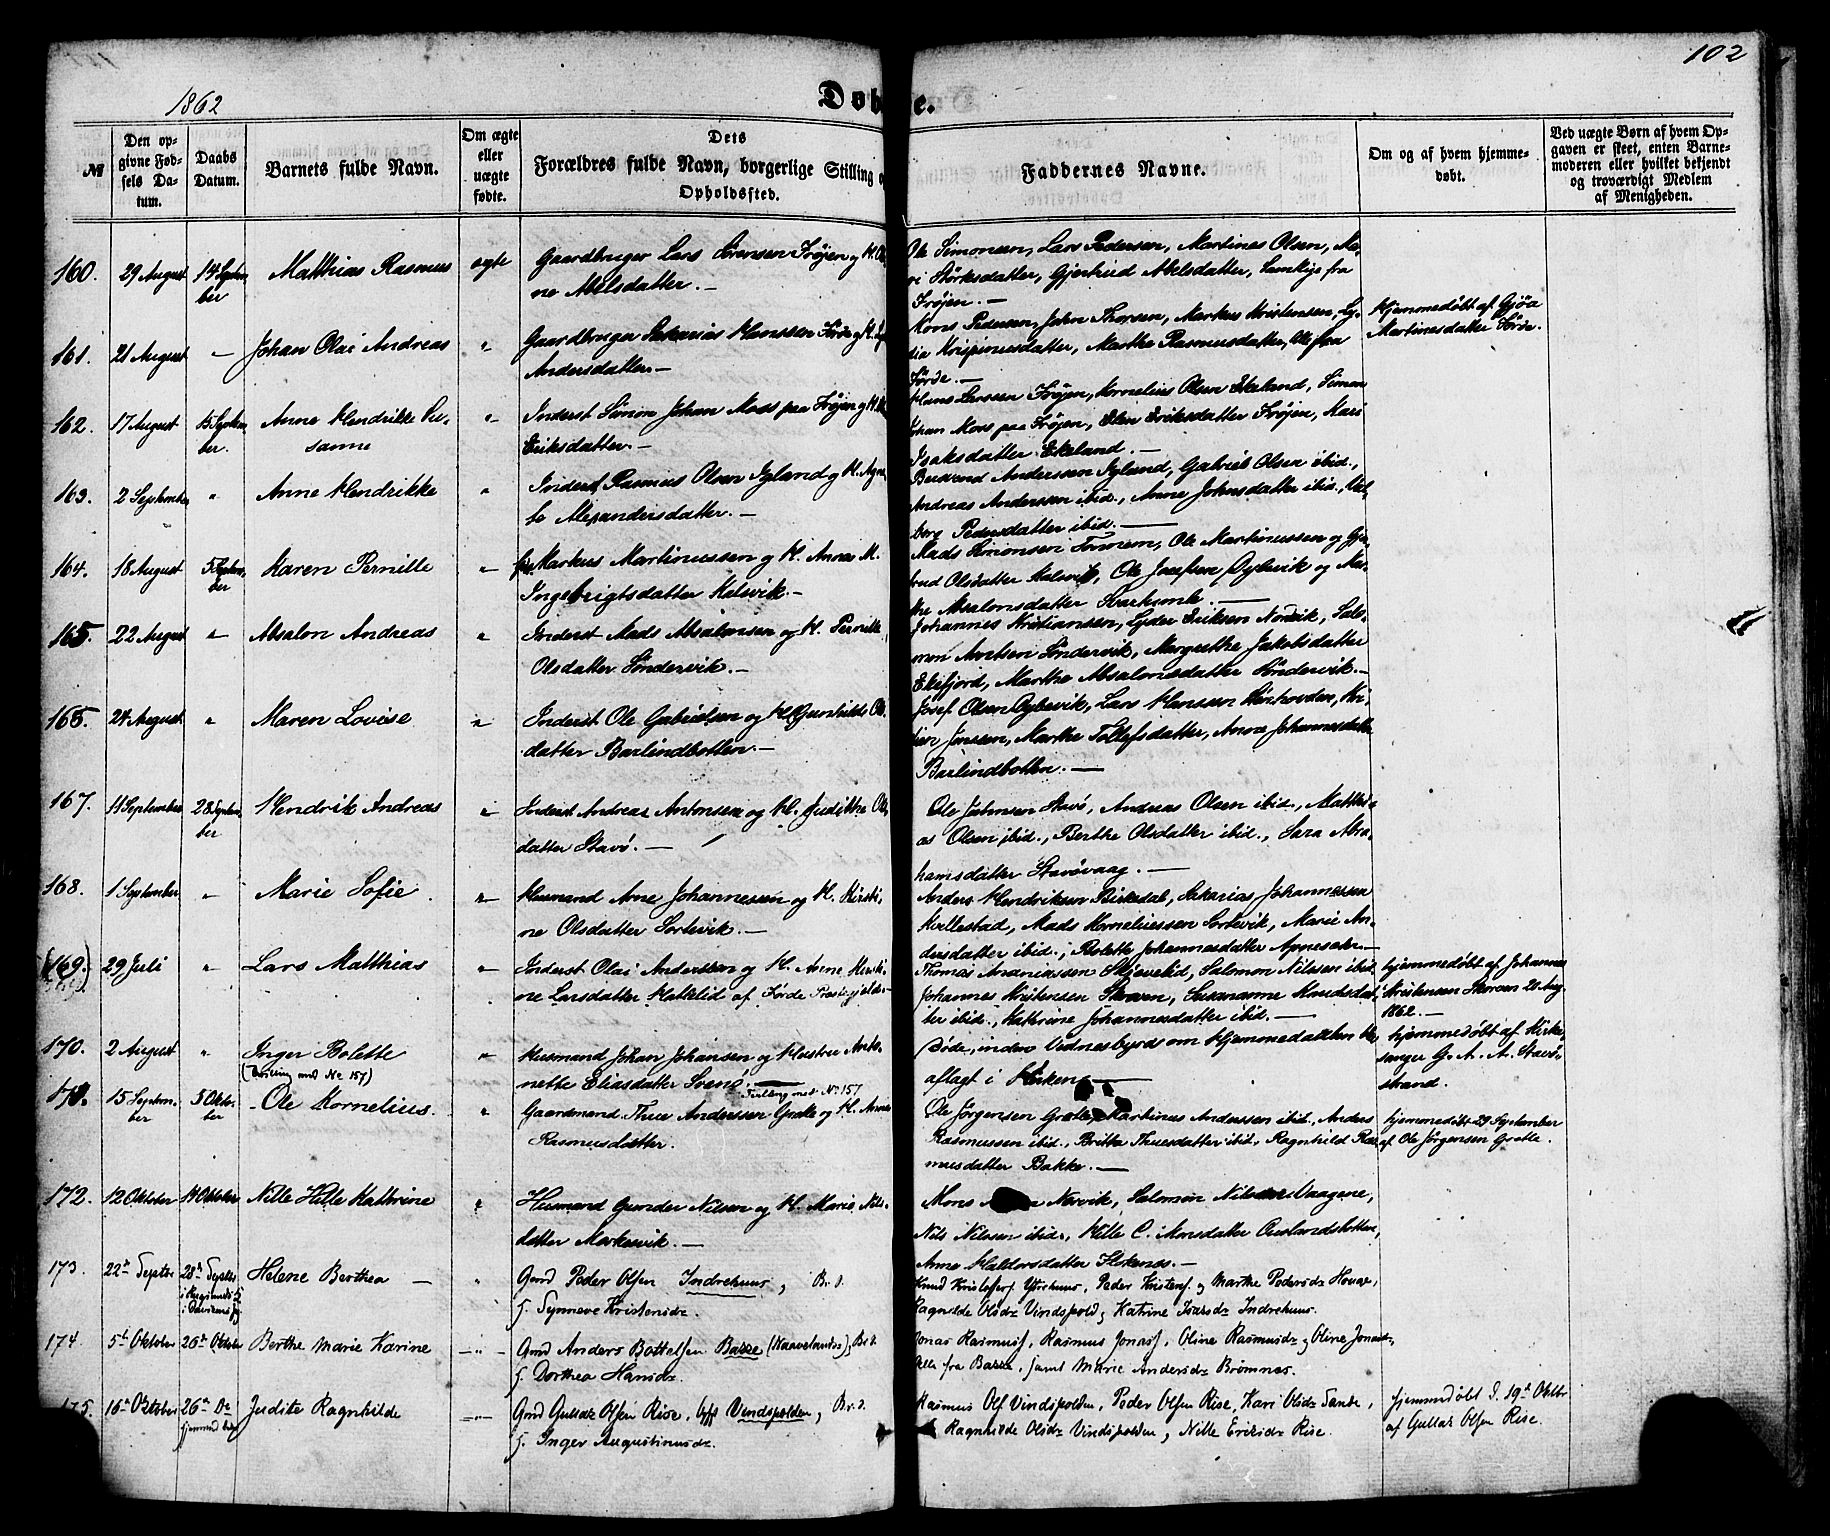 102
1862
Døbte.
№
Den op-
givne Fød-
sels Da-
tum.
Daabs
Datum.
Barnets fulde Navn.
Om ægte
eller
uægte
fødte.
Dets
Forældres fulde Navn, borgerlige Stilling o
Opholdssted.
Faddernes Navne.
Om og af hvem hjemme-
døbt.
Ved uægte Børn af hvem Op-
gaven er skeet, enten Barne-
moderen eller hvilket bekjendt
og troværdigt Medlem
af Menigheden.
160. 29 August 14 Septem- Matthias Rasmus ægte Gaardbruger Lars Sørensen Frøjen og H. Ol
ber ne Abelsdatter. —
Ole Simonsen, Lars Pedersen, Martines Olsen, Ma-
ri Størksdatter, Gjertrud Abelsdatter, Samtlige fra
Frøjen. —
161. 21 August — Johan Olai Andreas " Gaardbruger Sakarias Hanssen Førde og H.
Andersdatter —
Mons Pedersen, John Thorsen, Markus Kristensen, Ly-
dia Krispinusdatter, Marthe Rasmusdatter, Alle fra
Førde. —
Hjemmedøbt af Gjøa
Martinesdatter Førde.
162. 17 August 15 Septem- Anne Hendrikke Su- " Inderst Simon Johan Moss paa Frøjen og H.
ber. sanne Eriksdatter. —
Hans Larssen Frøjen, Kornelius Olsen Ekeland, Simon
Johan Moss paa Frøjen, Elen Eriksdatter Frøjen, Kari
Isaksdatter Ekeland. —
163. 2 September " Anne Hendrikke " Inderst Rasmus Olsen Igland og H. Agne
te Alexandersdatter. —
Berend Anderssen Igland, Gabriel Olsen ibid.,
Andreas Anderssen ibid., Anne Johnsdatter ibid., Val-
borg Pedersdatter ibid. —
164. 18 August 5 Septem- Karen Pernille " Markus Martinussen og H. Anne M.
ber Ingebrigtsdatter Kalsvik. —
Mads Simonsen Tonnem, Ole Martinussen og Gjer-
trud Olsdatter Kalsvik, Ole Josefsen Dybevik og Mar-
the Absalonsdatter —
165. 22 August " Absalon Andreas " Inderst Mads Absalonsen og H. Pernille
Olsdatter Søndervik. —
Johannes Kristianssen, Lyder Eriksen Nordvik, Salo-
mon Søndervik, Margrethe Jakobsdatter
Eikefjord, Marthe Absalonsdatter Søndervik. —
165. 24 August " Maren Lovise " Inderst Ole Gabrielsen og H. Gunhilde Ols
datter Barlindbotten. —
Josef Olsen Dybevik, Lars Hanssen Kri-
sten Janssen, Marthe Tollefsdatter, Anne Johannesdatter
Barlindbotten. —
167. 11 September 28 Septem- Hendrik Andreas " Inderst Andreas Antonsen og H. Judikke Ols
ber datter Stavø. —
Ole Johnsen Stavø, Andreas Olsen ibid., Matthi-
as Olsen ibid., Berthe Olsdatter ibid., Sara Abra-
hamsdatter Stavøvaag. —
168. 1 September " Marie Sofie. " Husmand Arne Johannessen og H. Kirsti-
ne Olsdatter Sortevik. —
Anders Hendriksen Birkedal, Sakarias Johannessen
Kvellestad, Mads Korneliussen Sortevik, Marie An-
dersdatter ibid., Bolette Johannesdatter —
(169.) 29 Juli " Lars Matthias " Inderst Olai Anderssen og H. Anne Kirsti-
ne Larsdatter Hattelid af Førde Præstegjeld.
Thomas Ananiassen Skjevelid, Salomon Nilssen ibid.
Johannes Kristensen Storøen, Susanne Knudsdat-
ter ibid., Kathrine Johannesdatter ibid. —
hjemmedøbt af Johannes
Kristensen Storøen 20 Aug.
1862. —
170. 2 August " Inger Bolette " Husmand Johan Johansen og Hustru Anto-
(Tvilling med No 157) nette Eliasdatter Svanø. —
Tvilling med No 157
Døde, inden Vidnesbyrd om Hjemmedaaben
aflagt i Kirken —
hjemmedøbt af Kirke-
sanger G. A. A. Stavø-
strand.
171. 15 Septem- 5 Okto- Ole Kornelius. " Gaardmand Thue Anderssen Grøtte og H. Anne
ber ber Rasmusdatter.
Ole Jørgensen Grøtte, Martinus Anderssen ibid., Anders
Rasmussen ibid., Britha Thuesdatter ibid., Ragnhild Ras-
musdatter Bakke. —
hjemmedøbt 29 September
af Ole Jørgensen Grøtte.
172. 12 Oktober 14 Oktober Nille Hille Kathrine " Husmand Gunder Nilsen og H. Marie Nils-
datter Markevik. —
Mons Nervik, Salomon Nilssen Vaagene,
Nils Nilssen ibid., Hille C. Monsdatter
Anne Haldorsdatter —
173. 22de Septbr 28de Septbr Helene Berthea — " Gmd Peder Olsen Indrehuus, Br. S.
H. Synneve Kristensdr.
Knud Kristofers. Ytrehuus, Peder Kristens. og Marthe Pedersdr Hovge,
Ragnilde Olsdr Vindspold, Katrine Ivarsdr Indrehuus.
174 5te Oktober 26de Oktober Berthe Marie Karine — " — Gmd Anders Bottolfsen Bakke (Kaavelandet), Br. S.
H. Dorthea Hansdr.
Jonas Rasmuss., Rasmus Jonass., Oline Rasmusdr og Oline Jonasdr
Alle fra Bakke, samt Marie Andersdr Brømnes.
175. 16de Oktober 26de Do Judite Ragnhilde — " — Gmd Gullak Olsen Rise, Vindspolden, Br. S.
H. Inger Augustinusdr.
Rasmus Ols. Vindspolden, Peder Olsen Rise, Kari Olsdr Sande,
Ragnhilde Olsdr Vindspolden, Nille Eriksdr Rise.
hjemmedøbt d. 19de Oktbr
af Gullak Olsen Rise.